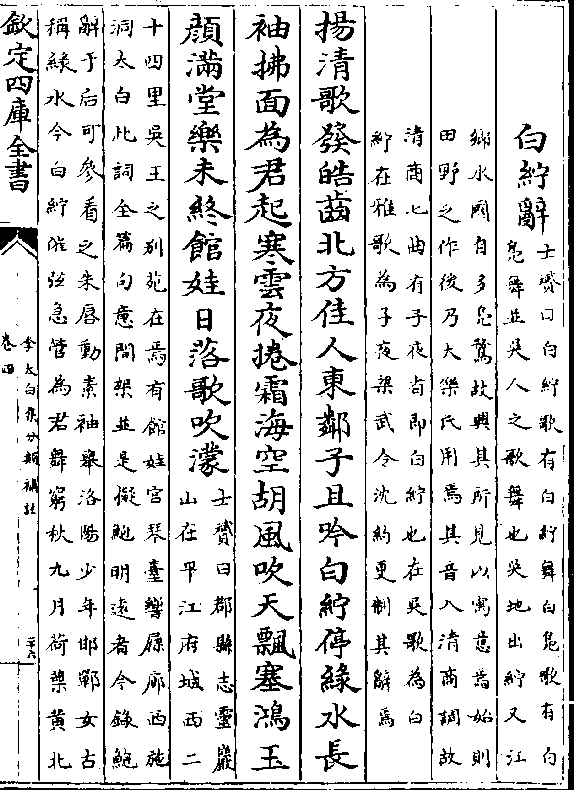 白紵辭
士贇曰白紵歌有白紵舞白鳧歌有白
鳧舞並吳人之歌舞也吳地出紵又江
鄉水國自多鳧鶩故興其所見以寓意焉始則
田野之作後乃大樂氏用焉其音入清商調故
清商七曲有子夜者即白紵也在吳歌為白
紵在雅歌為子夜梁武令沈約更制其辭焉
揚清歌發皓齒北方佳人東鄰子且吟白紵停緑水長
袖拂面為君起寒雲夜捲霜海空胡風吹天飄塞鴻玉
顔滿堂樂未終館娃日落歌吹濛
士贇曰郡縣志靈巖
山在平江府城西二
十四里吳王之别苑在焉有館娃宮琴臺響屧廊西施
洞太白此詞全篇句意間架並是擬鮑明逺者今録鮑
辭于后可參看之朱唇動素袖舉洛陽少年邯鄲女古
稱緑水今白紵催弦急管為君舞窮秋九月荷葉黄北
欽定四庫全書
李太白集分類補註
卷四
二十六